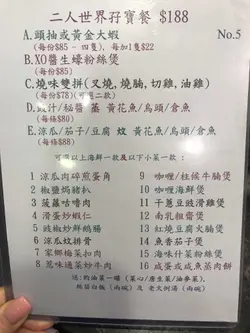 二人世界孖寶餐 $188
A.頭抽或黃金大蝦 No.5
(每份$85 - 四隻), 每加1隻$22
B.XO醬生蠔粉絲煲
(每份$85)
C.燒味雙拼(叉燒, 燒腩, 切雞, 油雞)
(每份$78)(可選二款)
D.豉汁/椒醬 蒸 黃花魚/烏頭/倉魚
(每條$88)
E.涼瓜/茄子/豆腐 炆 黃花魚/烏頭/倉魚
(每條$88)
可選以上海鮮一款及以下小菜一款：
1 涼瓜肉碎煎蛋角
2 椒鹽焗豬扒
3 菠蘿咕嚕肉
4 滑蛋炒蝦仁
5 豉椒炒鮮鷄腸
6 涼瓜炆排骨
7 家鄉梅菜扣肉
8 菜通菜炒牛肉
9 咖喱/柱候牛腩煲
10 咖喱海鮮煲
11 干蔥豆豉滑雞煲
12 南乳粗齋煲
13 紅燒豆腐火腩煲
14 魚香茄子煲
15 海味什菜粉絲煲
16 咸蛋或咸魚蒸肉餅
送：灼油菜一碟 (菜心/唐生菜/油麥菜),
絲苗白飯 (兩碗) 及 老火例湯 (兩碗)